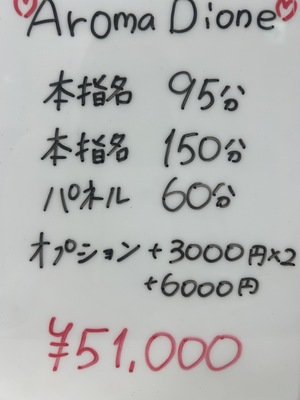 Aroma Dione
本指名 95分
本指名 150分
パネル 60分
オプション +3000円×2
+6000円
¥51,000